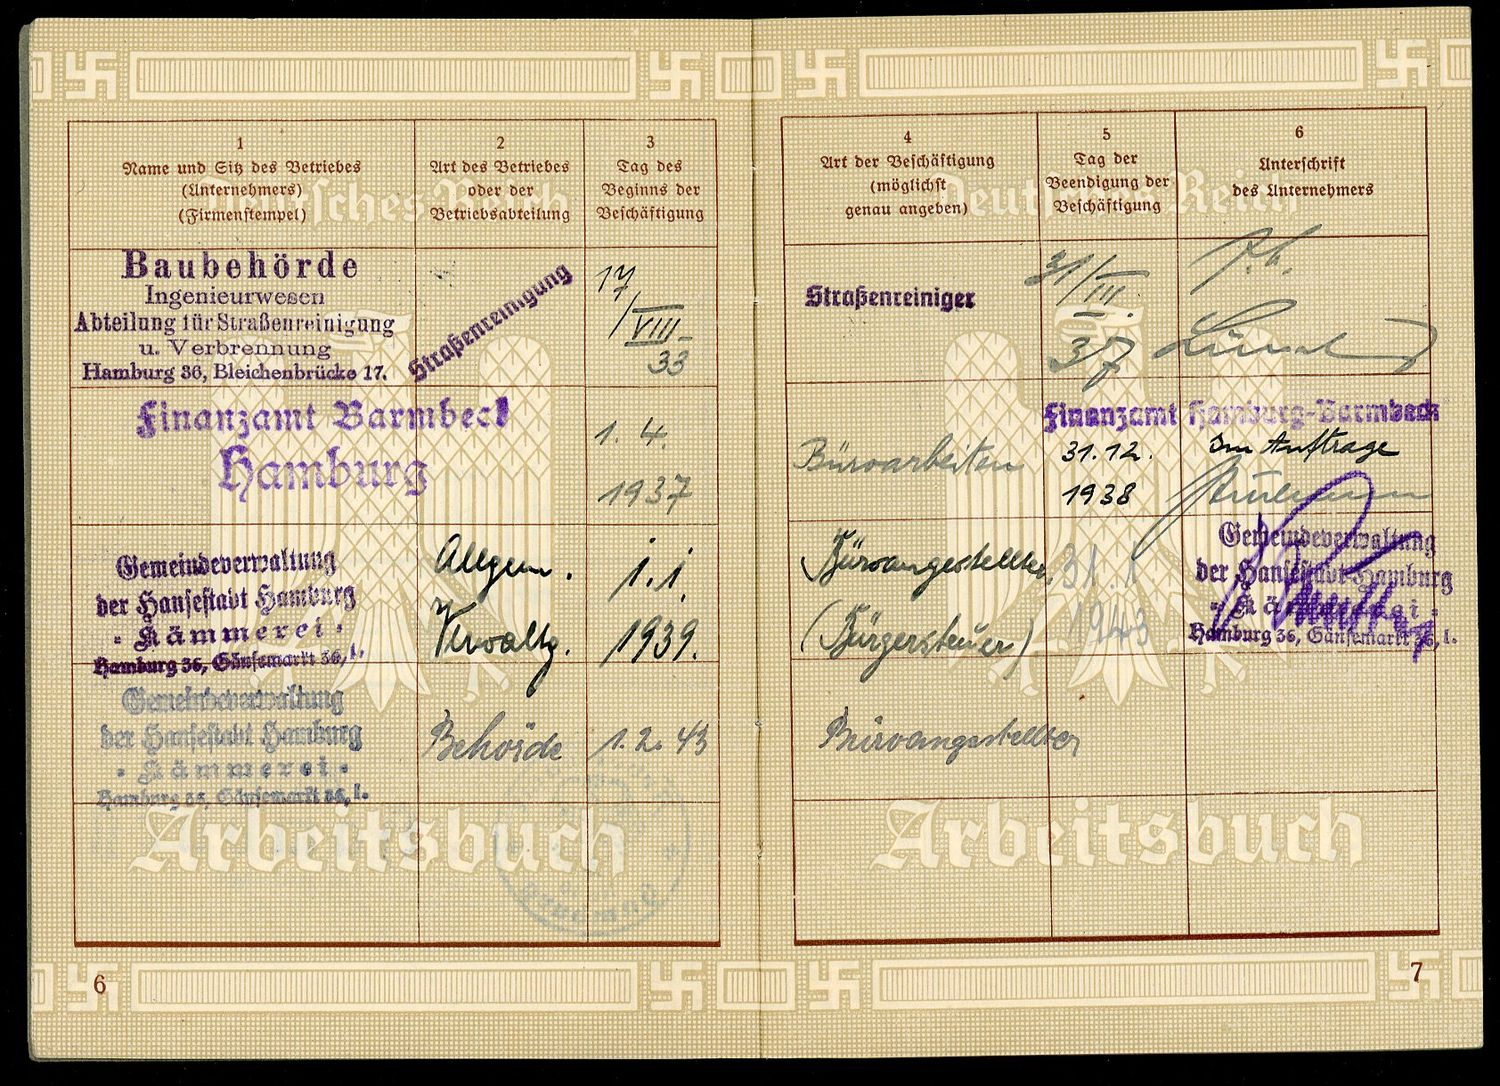 1
Name und Sitz des Betriebes
(Unternehmers)
(Firmenstempel)
2
Art des Betriebes
oder der
Betriebsabteilung
3
Tag des
Beginns der
Beschäftigung
Baubehörde
Ingenieurwesen
Abteilung für Straßenreinigung
u. Verbrennung
Hamburg 36, Bleichenbrücke 17.
Straßenreinigung
17
/VIII.
33
Finanzamt Barmbeck
Hamburg
1. 4.
1937
Gemeindeverwaltung
der Hansestadt Hamburg
- Kämmerei -
Hamburg 36, Gänsemarkt 36, I.
Allgem.
Verwaltg.
1.1.
1939.
Gemeindeverwaltung
der Hansestadt Hamburg
- Kämmerei -
Hamburg 36, Gänsemarkt 36, I.
Behörde
1. 2. 43
Deutsches Reich
Arbeitsbuch
6
4
Art der Beschäftigung
(möglichst
genau angeben)
5
Tag der
Beendigung der
Beschäftigung
6
Unterschrift
des Unternehmers
Straßenreiniger
31/III.
37
Büroarbeiten
31.12.
1938
Finanzamt Hamburg-Barmbeck
Im Auftrage
Büroangestellter
(Bürgersteuer)
31. 1
1943
Gemeindeverwaltung
der Hansestadt Hamburg
- Kämmerei -
Hamburg 36, Gänsemarkt 36, I.
Büroangestellter
Deutsches Reich
Arbeitsbuch
7